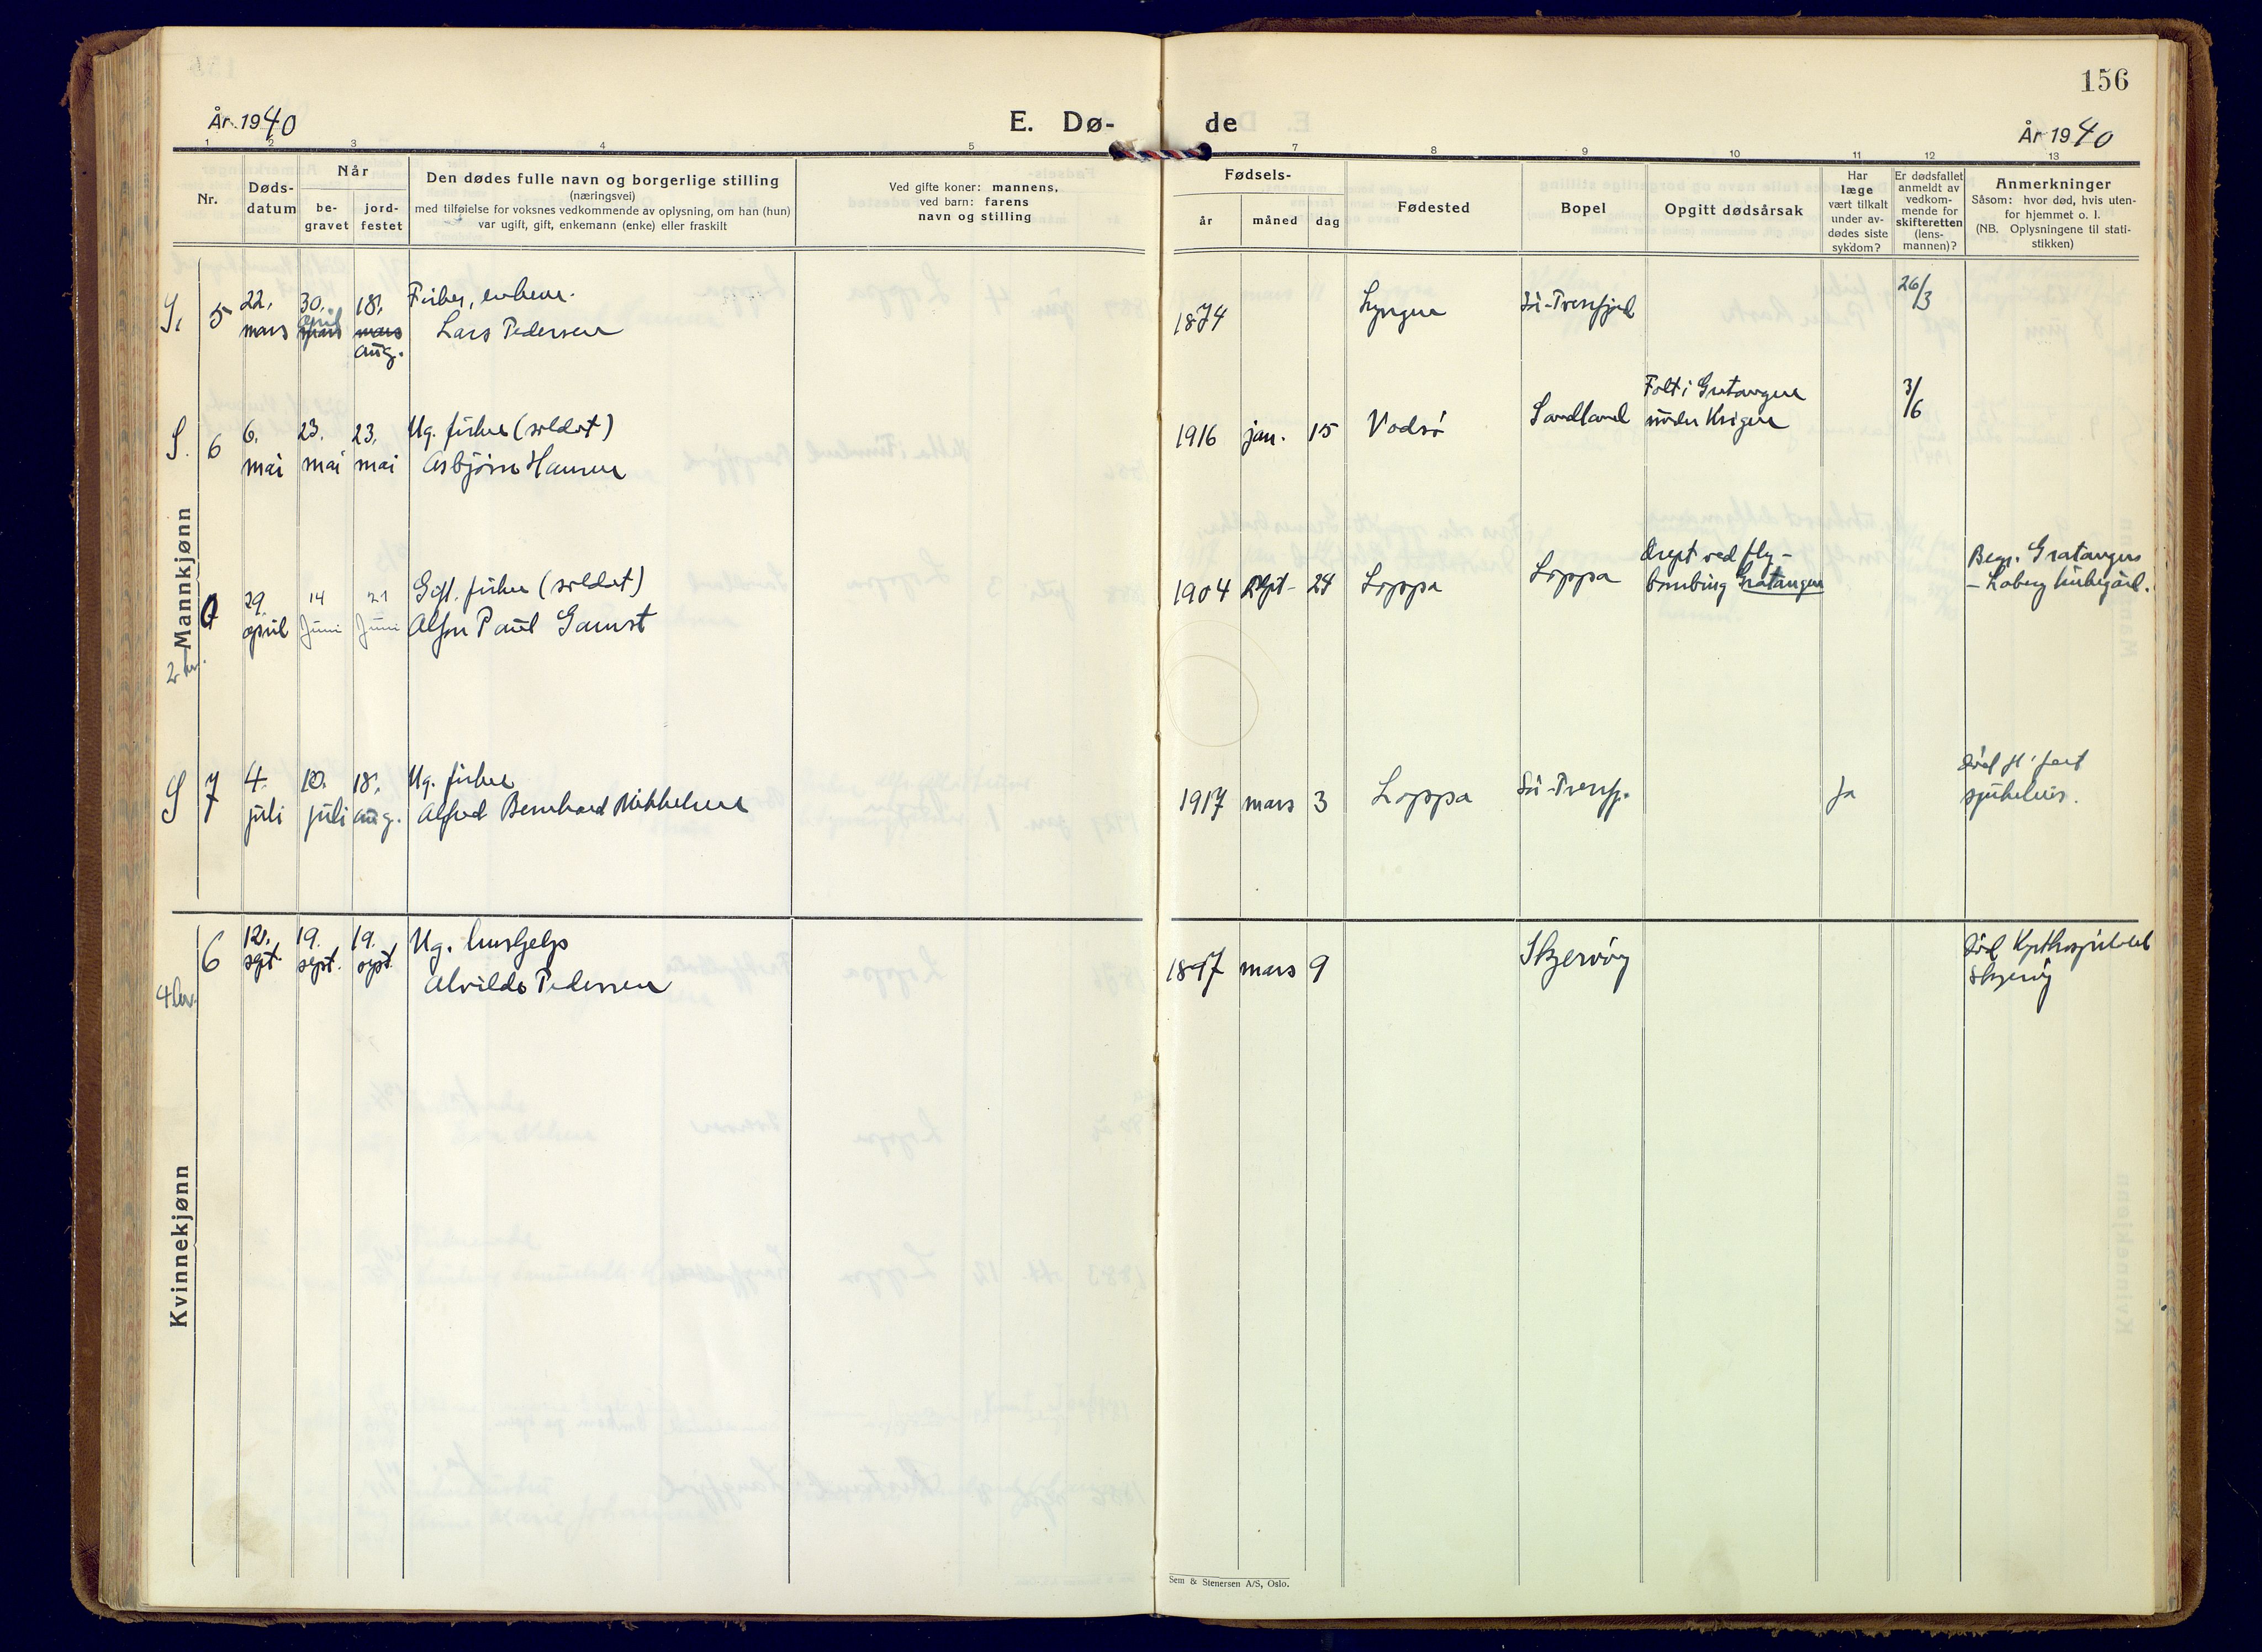 156
År 1940
E. Dø-
de
År 1940
1 2 3 4 5 7 8 9 10 11 12 13
Nr.
Døds-
datum
Når
be-
gravet
jord-
festet
Den dødes fulle navn og borgerlige stilling
(næringsvei)
med tilføielse for voksnes vedkommende av oplysning, om han (hun)
var ugift, gift, enkemann (enke) eller fraskilt
Ved gifte koner: mannens,
ved barn: farens
navn og stilling
Fødsels-
år
måned
dag
Fødested
Bopel
Opgitt dødsårsak
Har
læge
vært tilkalt
under av-
dødes siste
sykdom?
Er dødsfallet
anmeldt av
vedkom-
mende for
skifteretten
(lens-
mannen)?
Anmerkninger
Såsom: hvor død, hvis uten-
for hjemmet o. l.
(NB. Oplysningene til stati-
stikken)
Mannkjønn
S. 5
22.
mars
30.
april
mars
18.
mars
aug.
Fisker, enkem.
Lars Pedersen
1874
Lyngen
Sù-Tverrfjord
26/3
S. 6
6.
mai
23.
mai
23.
mai
Ug. fisker (soldat)
Asbjørn Hansen
1916 jan. 15
Vadsø
Sandland
Falt i Gratangen
under Krigen
3/6
0
29.
april
14
Juni
21
Juni
Gift. fisker (soldat)
Alfon Paul Gamst
1904 Sept- 24
Loppa
Loppa
drept ved fly-
bombing Gratangen
Begr. Gratangen
- Loberg kirkegård.
2
S 7
4.
juli
10.
juli
18.
aug.
Ug. fisker
Alfred Bernhard Mikkelsen
1917 mars 3
Loppa
Sù-Tverrfj.
Ja
død
sjukehus.
Kvinnekjønn
6
12.
sept.
19.
sept.
19.
sept.
Ug. hushjelp
Alvilde Pedersen
1897 mars 9
Skjervøy
død Kysthospitalet
Skjervøy
4
Sem & Stenersen A/S, Oslo.